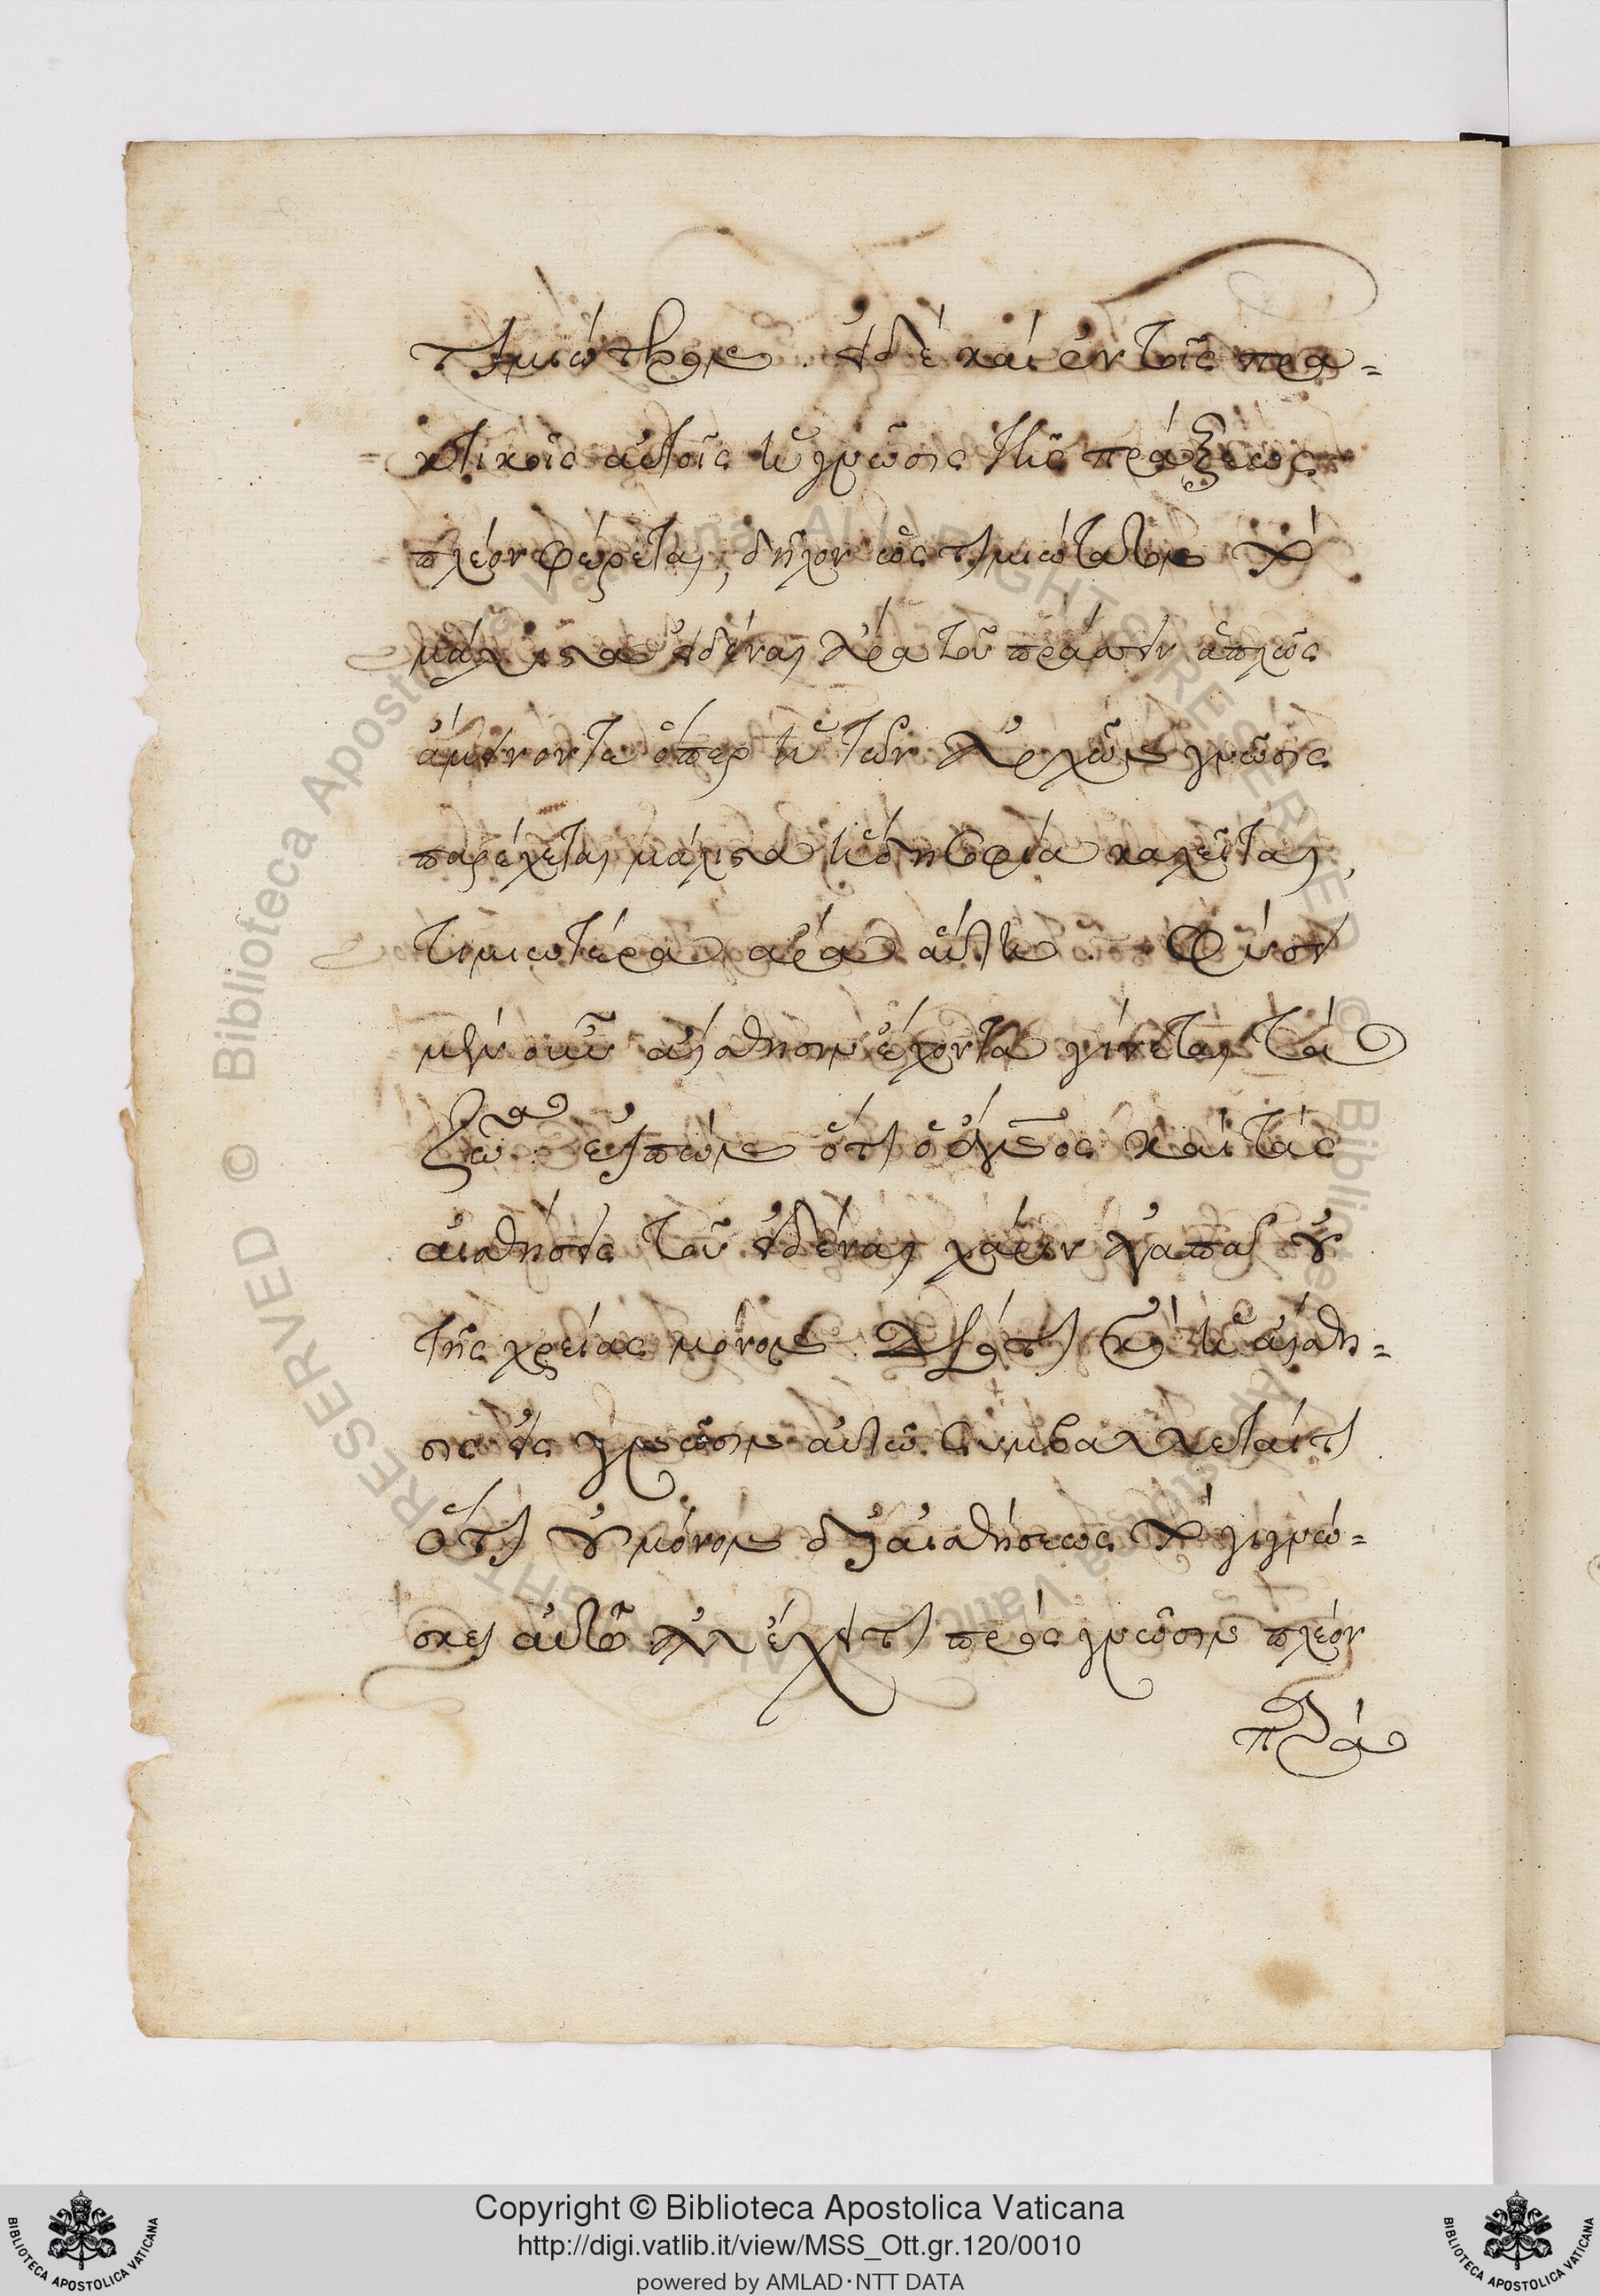 τιμιώτερον. εἰ δὲ καὶ ἐν τοῖς πρα=
κτικοῖς αὐτοῖς ἡ γνῶσις τῆς πράξεως
πλέον φέρεται, δῆλον ὡς τιμιώτατον καὶ
μάλιστα εἰδέναι ἄρα τοῦ πράττειν ἁπλῶς
ἄμεινον τὸ ὅπερ ἡ τῶν ἀρχῶν γνῶσις
παρέχεται μάλιστα ἡ δὴ σοφία καλεῖται,
τιμιωτέρα ἄρα αὕτη. Φύσει
μὲν οὖν αἴσθησιν ἔχοντα γίνεται τὰ
ζῶα. εἰπὼν ὅτι ὁ ἄνθρωπος καὶ τὰς
αἰσθήσεις τοῦ εἰδέναι χάριν ἀγαπᾷ οὐ
τῆς χρείας μόνον. Διότι καὶ ἡ αἴσθη=
σις εἰς γνῶσιν αὐτῷ συμβάλλεταί τι
ὅτι οὐ μόνον δι' αἰσθήσεως καὶ γιγνώ=
σκει αὐτὸ ἀλλ' ἔχει τι πρὸς γνῶσιν πλέον
παρὰ
Copyright © Biblioteca Apostolica Vaticana
http://digi.vatlib.it/view/MSS_Ott.gr.120/0010
powered by AMLAD·NTT DATA
BIBLIOTECA APOSTOLICA VATICANA
BIBLIOTECA APOSTOLICA VATICANA